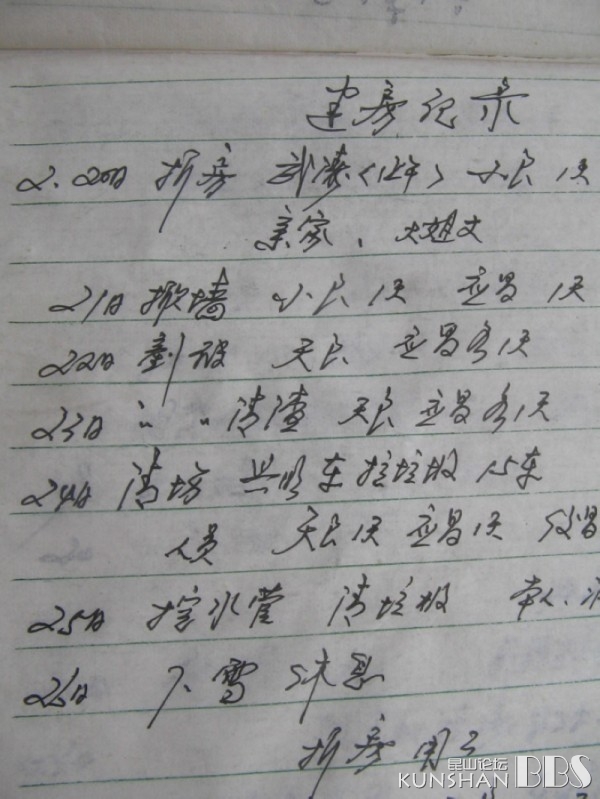 建房记录
2.20日 拆房 〈12车〉 小良 1天
亲家、大姐丈
21日 掀墙 小良 1天 应昌 1天
22日 天良 应昌各1天
23日 〃 〃清渣 天良 应昌各1天
24日 清场 车拉垃圾 15车
人员 天良1天 应昌1天
25日 挖水管 清垃圾 本人
26日 下雪 休息
拆房 用工
昆山论坛
KUNSHAN BBS